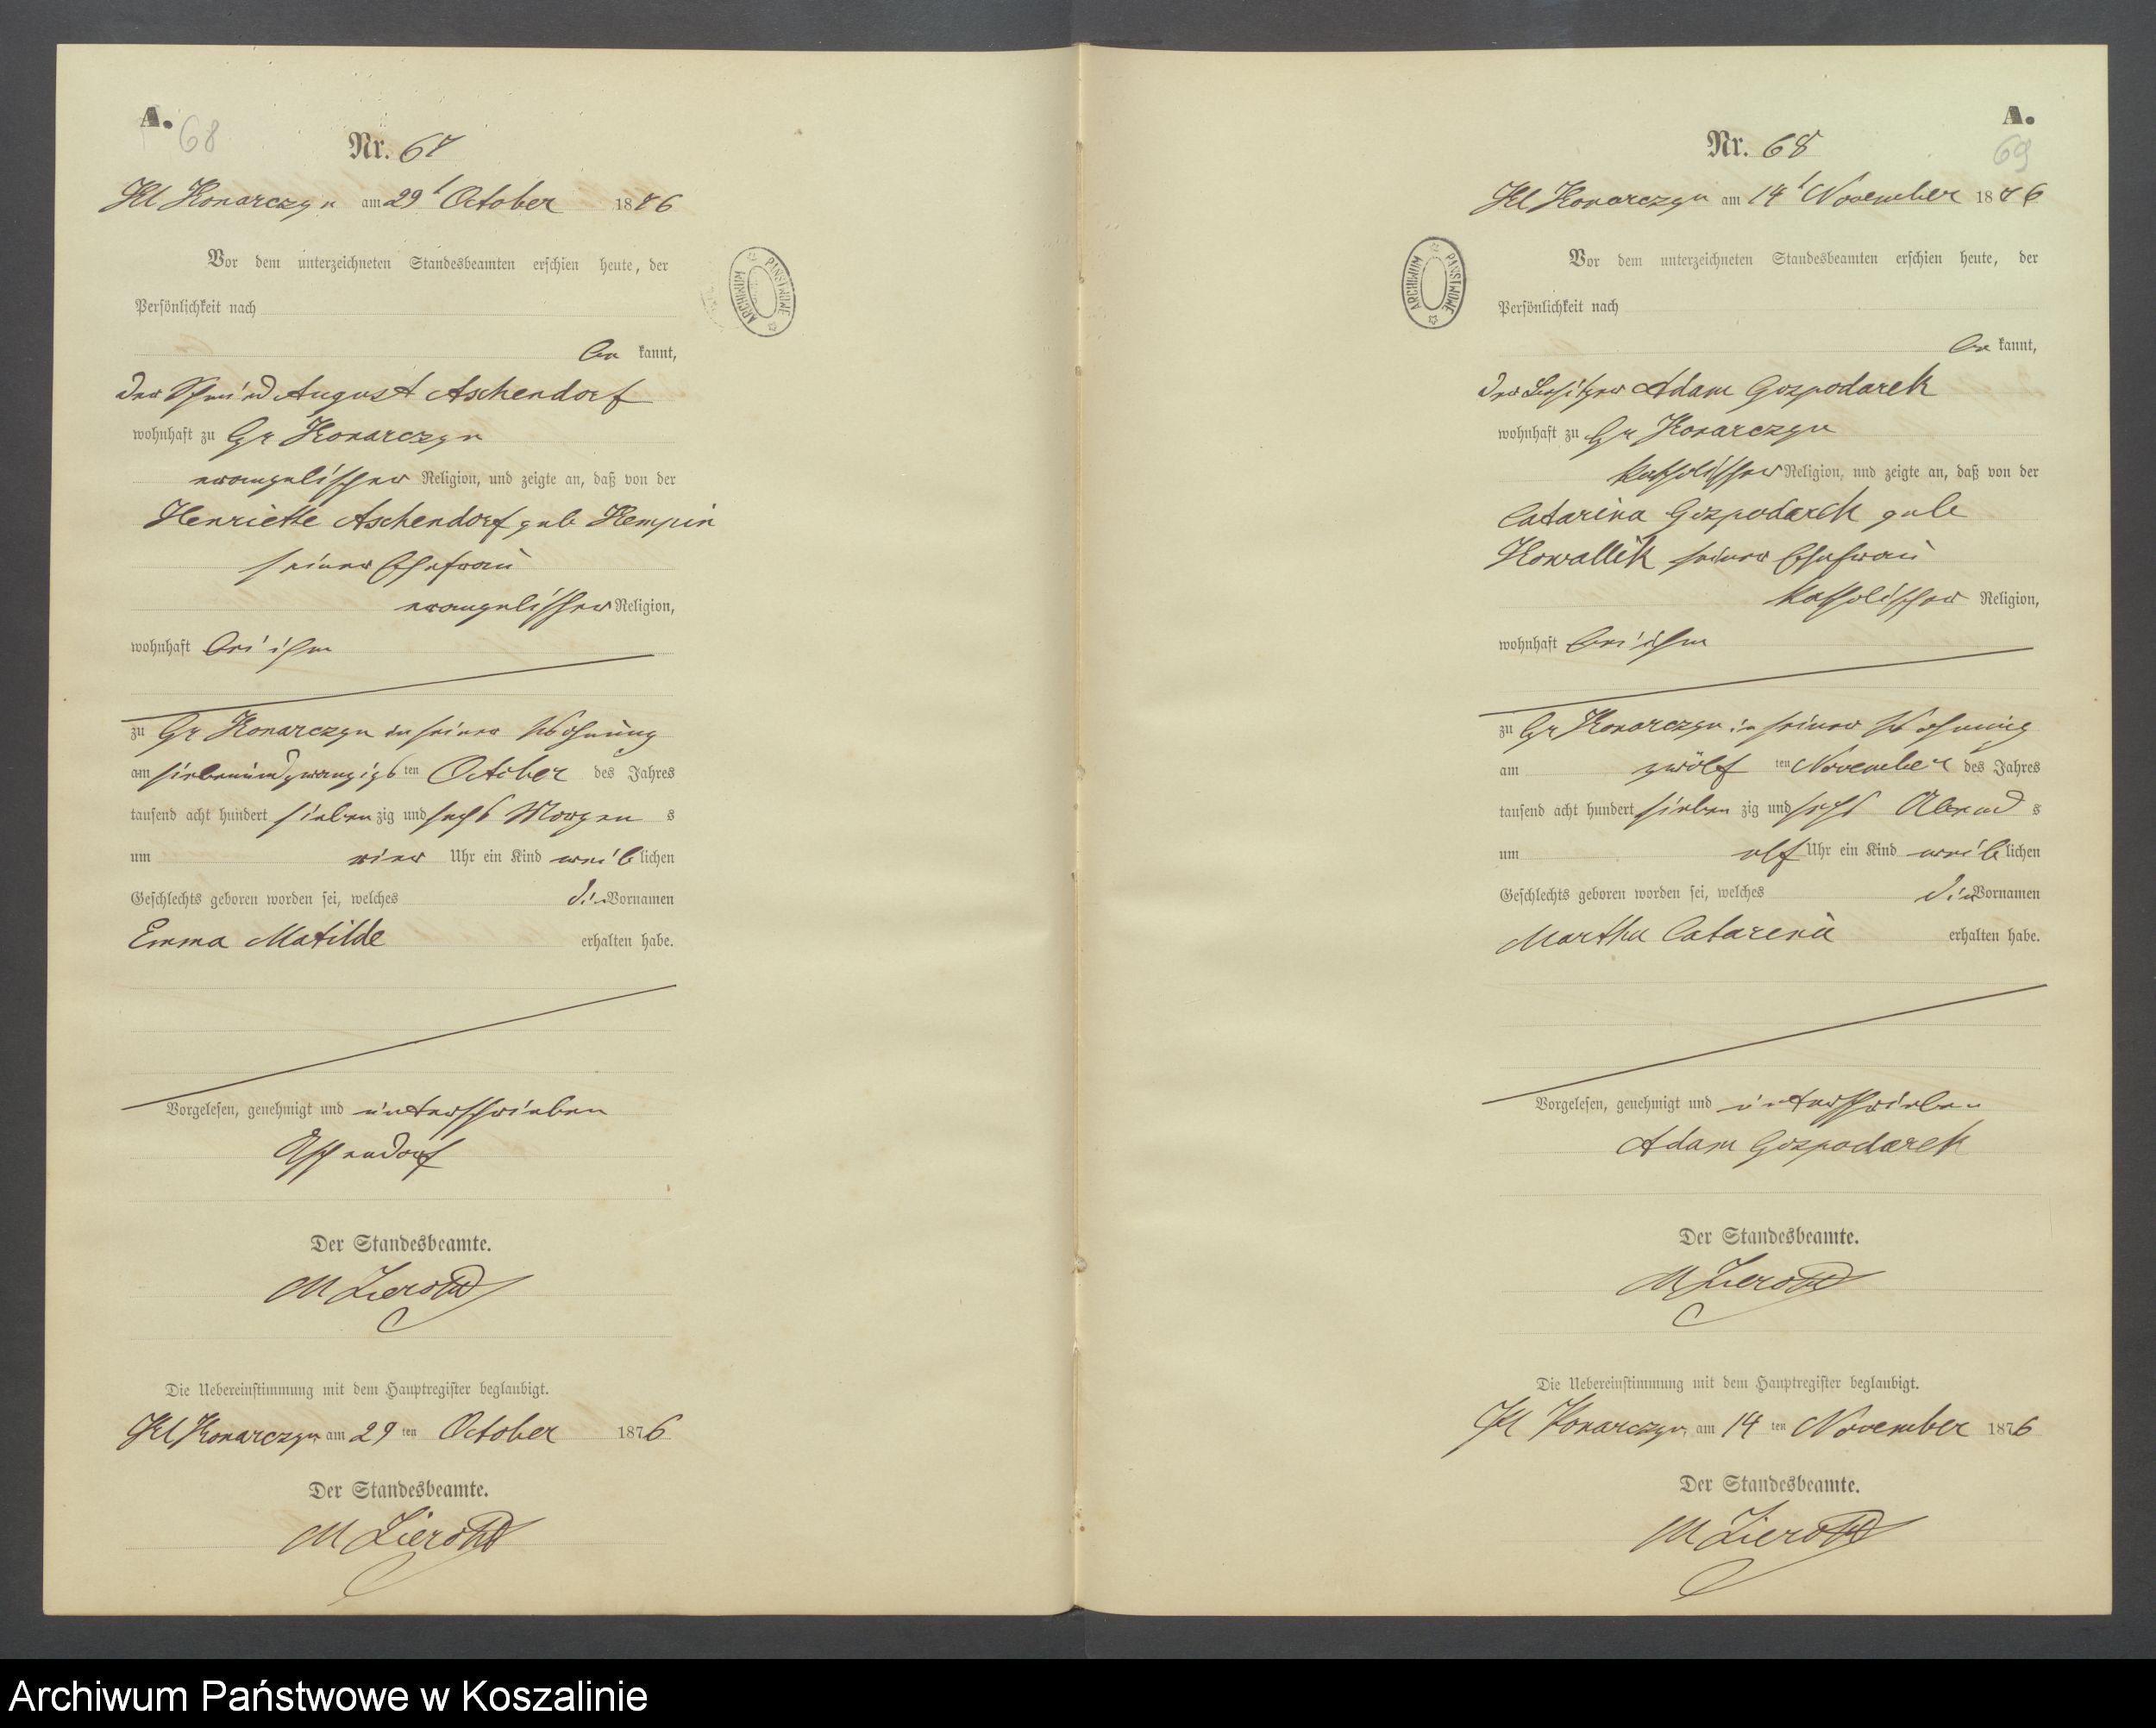 A.
68
Nr. 67
Kl Konarczyn am 29 t October 1876
Vor dem unterzeichneten Standesbeamten erschien heute, der
Persönlichkeit nach
be kannt,
der Schmied August Aschendorf
wohnhaft zu Gr Konarczyn
evangelischer Religion, und zeigte an, daß von der
Henriette Aschendorf geb Hempin
seiner Ehefrau
evangelischer Religion,
wohnhaft bei ihm
zu Gr Konarczyn in seiner Wohnung
am siebenundzwanzigs ten October des Jahres
tausend acht hundert sieben zig und sechs Morgen s
um vier Uhr ein Kind weib lichen
Geschlechts geboren worden sei, welches die Vornamen
Emma Matilde erhalten habe.
Vorgelesen, genehmigt und unterschrieben
Aschendorf
Der Standesbeamte.
M Zierold
Die Uebereinstimmung mit dem Hauptregister beglaubigt.
Kl Konarczyn am 29 ten October 1876
Der Standesbeamte.
M Zierold
ARCHIWUM PAŃSTWOWE
A.
69
Nr. 68
Kl Konarczyn am 14 t November 1876
Vor dem unterzeichneten Standesbeamten erschien heute, der
Persönlichkeit nach
be kannt,
der Besitzer Adam Gospodarek
wohnhaft zu Gr Konarczyn
katholischer Religion, und zeigte an, daß von der
Catarina Gospodarek geb
Kowallik seiner Ehefrau
katholischer Religion,
wohnhaft bei ihm
zu Gr Konarczyn in seiner Wohnung
am zwölf ten November des Jahres
tausend acht hundert sieben zig und sechs Abend s
um elf Uhr ein Kind weib lichen
Geschlechts geboren worden sei, welches die Vornamen
Martha Catarena erhalten habe.
Vorgelesen, genehmigt und unterschrieben
Adam Gospodarek
Der Standesbeamte.
M Zierold
Die Uebereinstimmung mit dem Hauptregister beglaubigt.
Kl Konarczyn am 14 ten November 1876
Der Standesbeamte.
M Zierold
ARCHIWUM PAŃSTWOWE
Archiwum Państwowe w Koszalinie